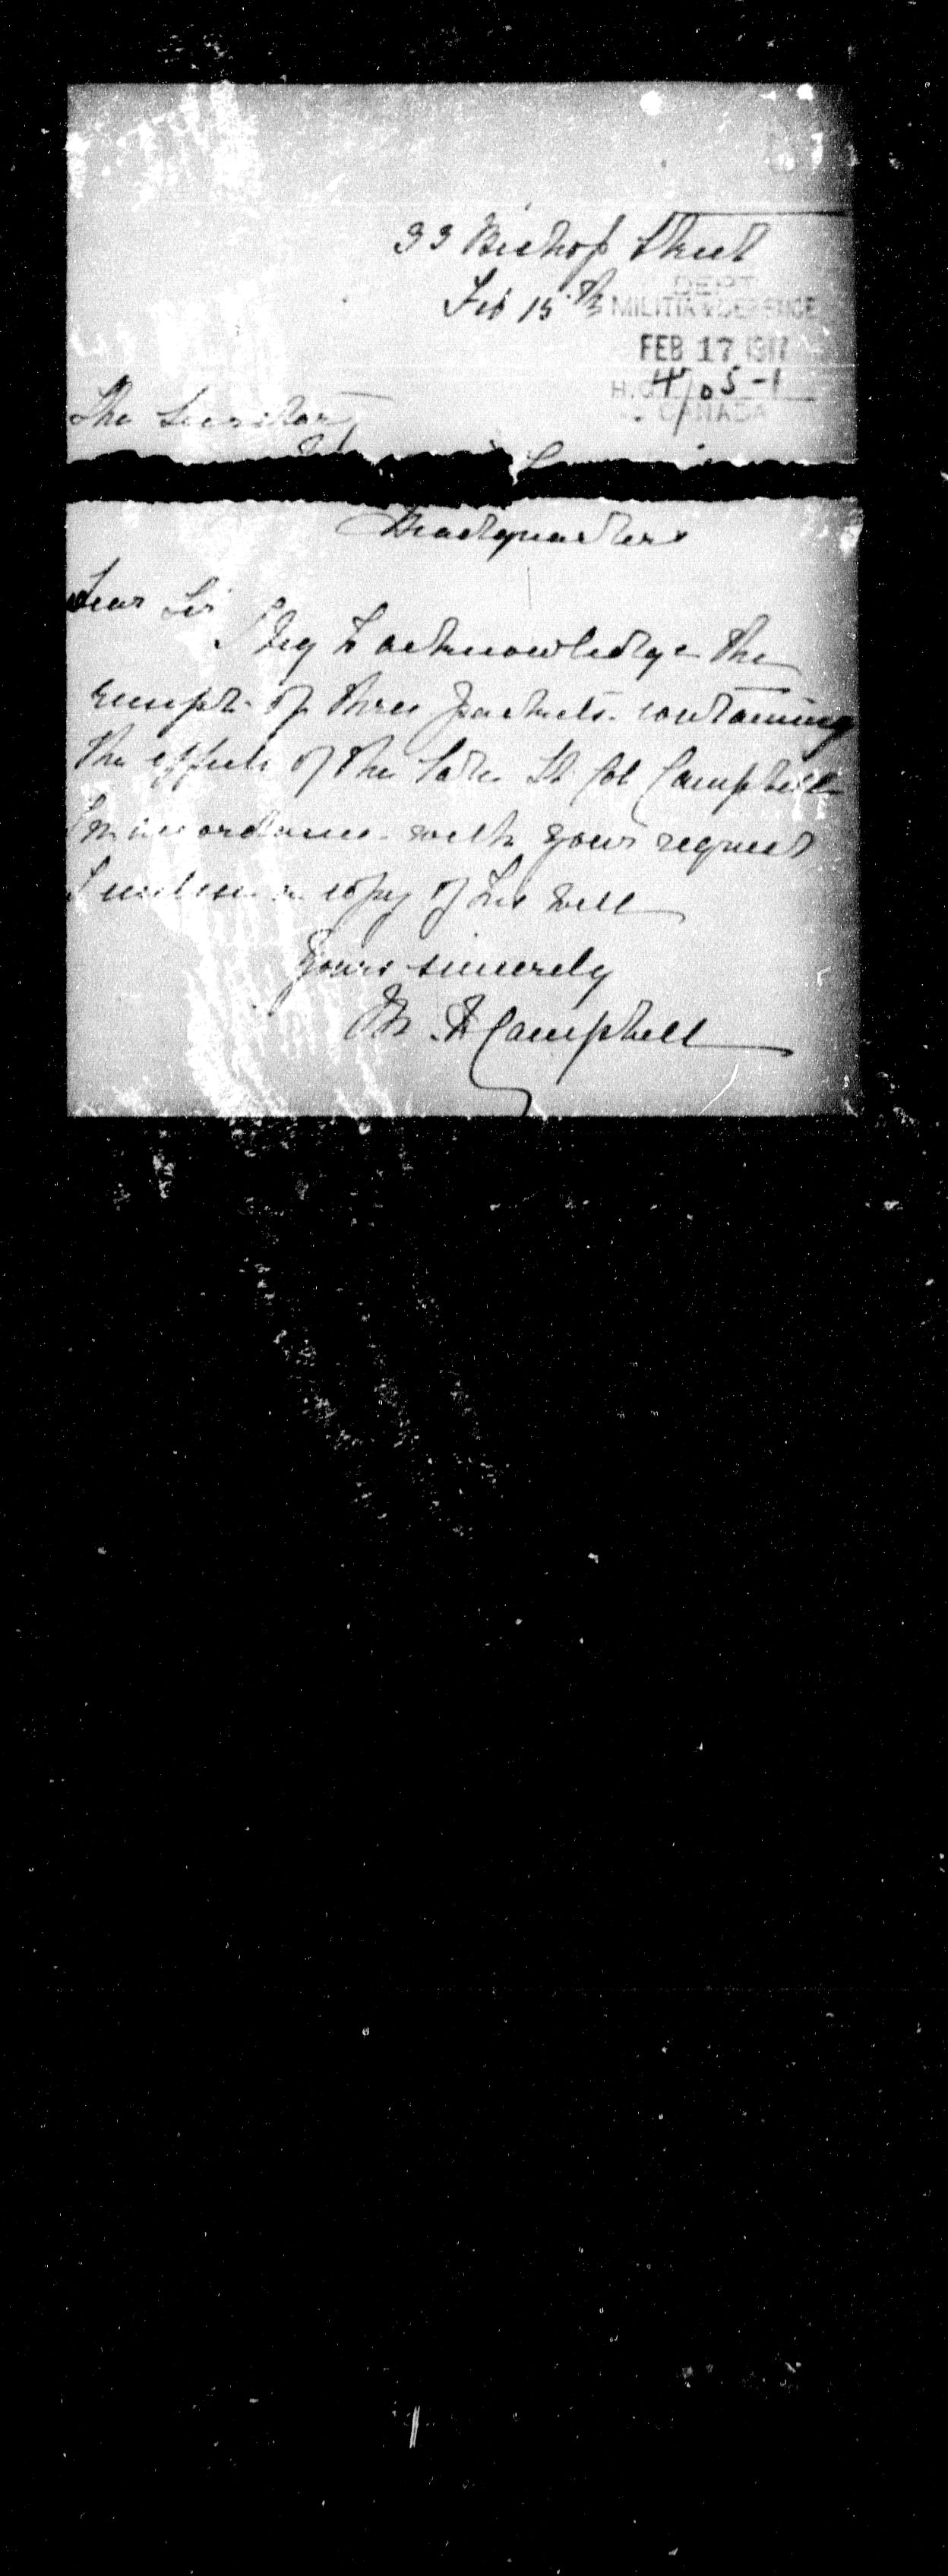 33 Bishop Street
Feb 15th
DEPT.
MILITIA & DEFENCE
FEB 17 1917
H.Q. 4705-1
CANADA
The Secretary
Headquarters
Dear Sir
I beg to acknowledge the
receipt of three packets containing
the effects of the late Lt Col Campbell
In accordance with your request
I enclose a copy of his will
Yours sincerely
Campbell